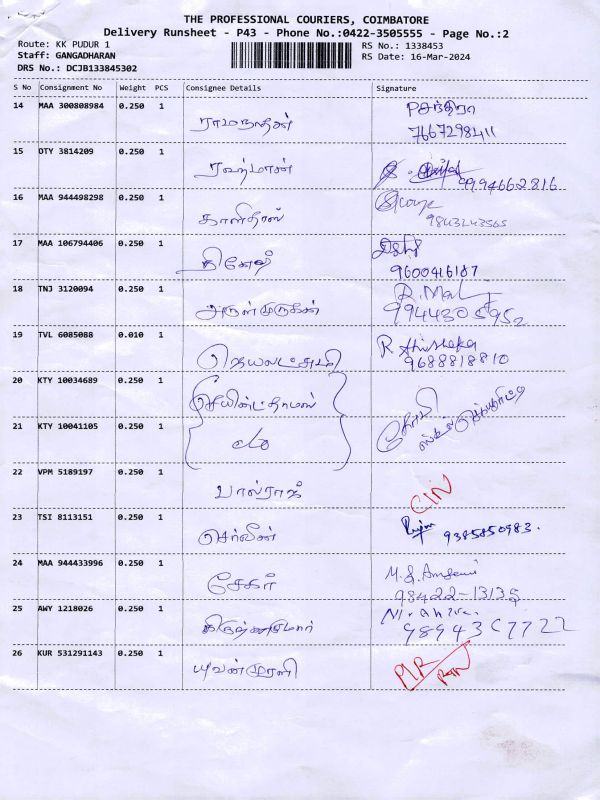 THE PROFESSIONAL COURIERS, COIMBATORE
Delivery Runsheet - P43 - Phone No.:0422-3505555 - Page No.:2
Route: KK PUDUR 1
RS No.: 1338453
Staff: GANGADHARAN
RS Date: 16-Mar-2024
DRS No.: DCJB133845302
S No Consignment No Weight PCS Consignee Details Signature
14 MAA 300808984 0.250 1 ராமநாதன் சந்திரா
7667298411
15 OTY 3814209 0.250 1
ரஹ்மான் 9994662816
16 MAA 944498298 0.250 1
காளிதாஸ் 9843243565
17 MAA 106794406 0.250 1
தினேஷ் 9600416187
18 TNJ 3120094 0.250 1
அருள்முருகன் 9944305952
19 TVL 6085088 0.010 1 R
ஜெயலட்சுமி 9688818810
20 KTY 10034689 0.250 1
செயின்ட்தாமஸ்
21 KTY 10041105 0.250 1
do
22 VPM 5189197 0.250 1
பால்ராஜ் CIN
23 TSI 8113151 0.250 1
செர்லின் 9385850983.
24 MAA 944433996 0.250 1
சேகர் M.S.
98422-13135
25 AWY 1218026 0.250 1
கிருஷ்ணகுமார்
26 KUR 531291143 0.250 1
யுவன்முரளி